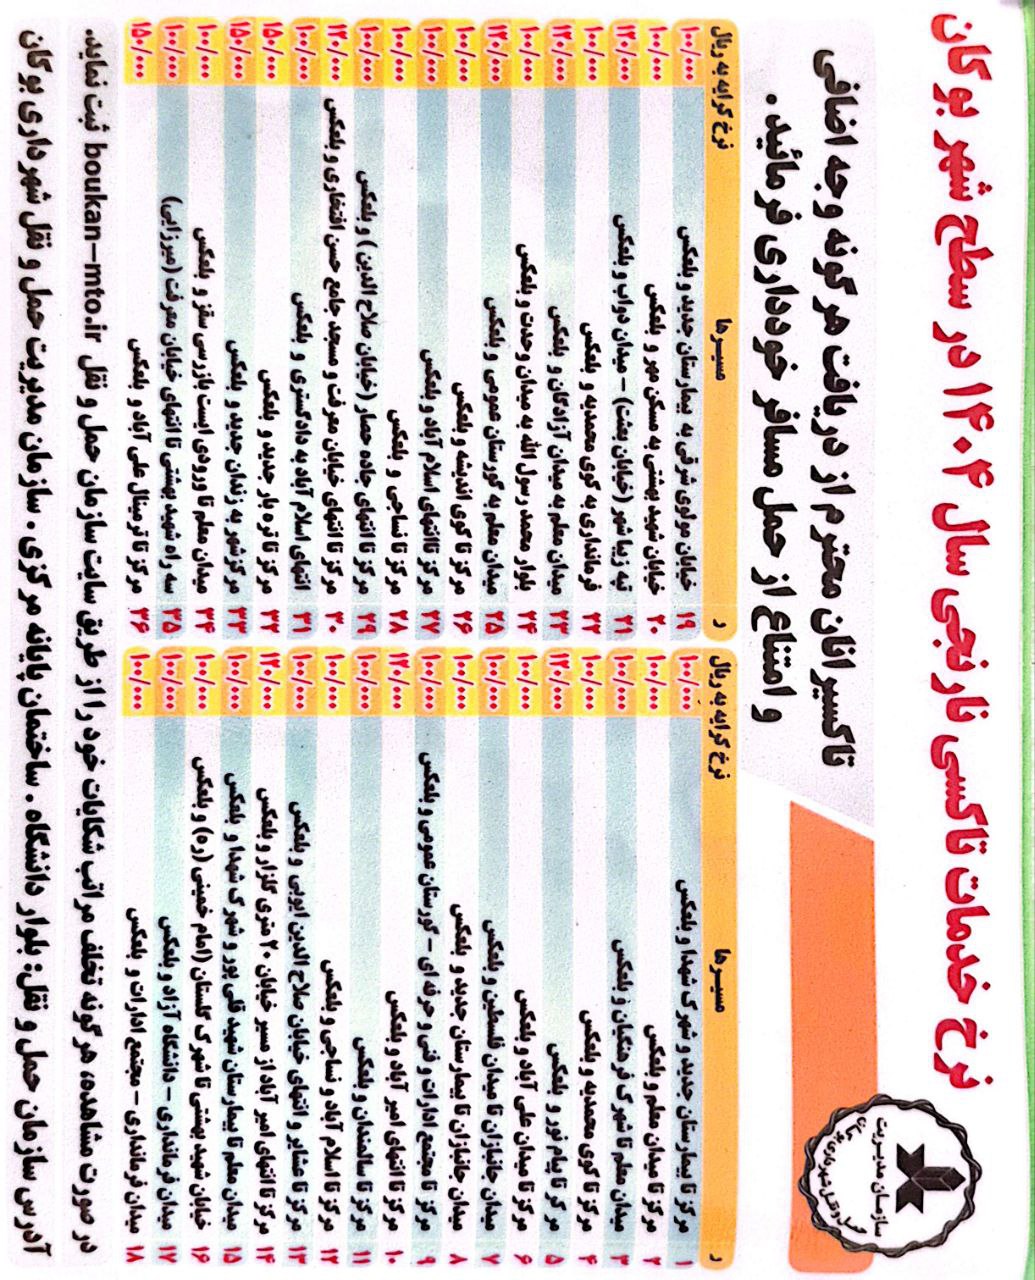 نرخ خدمات تاکسی نارنجی سال ۱۴۰۴ در سطح شهر بوکان
سازمان مدیریت
تاکسیرانان محترم از دریافت هر گونه وجه اضافی
و امتناع از حمل مسافر خودداری فرمائید .
ر مسیرها نرخ کرایه به ریال
۱ مرکز تا بیمارستان جدید و شهرک شهدا و بلعکس ۱۰۰/۰۰۰
۲ مرکز تا میدان معلم و بلعکس ۱۰۰/۰۰۰
۳ میدان معلم تا شهرک فرهنگیان و بلعکس ۱۰۰/۰۰۰
۴ مرکز تا کوی محمدیه و بلعکس ۱۰۰/۰۰۰
۵ مرکز تا پیام نور و بلعکس ۱۲۰/۰۰۰
۶ مرکز تا میدان علی آباد و بلعکس ۱۰۰/۰۰۰
۷ میدان جانبازان تا میدان فلسطین و بلعکس ۱۰۰/۰۰۰
۸ میدان جانبازان تا بیمارستان جدید و بلعکس ۱۰۰/۰۰۰
۹ مرکز تا مجتمع ادارات و فنی و حرفه ای - گورستان عمومی و بلعکس ۱۰۰/۰۰۰
۱۰ مرکز تا انتهای امیر آباد و بلعکس ۱۲۰/۰۰۰
۱۱ مرکز تا سالمندان و بلعکس ۱۰۰/۰۰۰
۱۲ مرکز تا اسلام آباد و نساجی و بلعکس ۱۰۰/۰۰۰
۱۳ مرکز تا عشایر و انتهای خیابان صلاح الدین ایوبی و بلعکس ۱۰۰/۰۰۰
۱۴ مرکز تا انتهای امیر آباد از مسیر خیابان ۲۰ متری گلزار و بلعکس ۱۲۰/۰۰۰
۱۵ میدان معلم تا بیمارستان شهید قلی پور و شهرک شهدا و بلعکس ۱۰۰/۰۰۰
۱۶ خیابان شهید بهشتی تا شهرک گلستان (امام خمینی (ره) و بلعکس ۱۰۰/۰۰۰
۱۷ میدان فرمانداری - دانشگاه آزاد و بلعکس ۱۰۰/۰۰۰
۱۸ میدان فرمانداری - مجتمع ادارات و بلعکس ۱۰۰/۰۰۰
ر مسیرها نرخ کرایه به ریال
۱۹ خیابان مولوی شرقی به بیمارستان جدید و بلعکس ۱۰۰/۰۰۰
۲۰ خیابان شهید بهشتی به مسکن مهر و بلعکس ۱۰۰/۰۰۰
۲۱ تپه زیبا شهر (خیابان بعثت) - میدان دواب و بلعکس ۱۲۰/۰۰۰
۲۲ فرمانداری به کوی محمدیه و بلعکس ۱۰۰/۰۰۰
۲۳ میدان معلم به میدان آزادگان و بلعکس ۱۲۰/۰۰۰
۲۴ بلوار محمد رسول الله به میدان وحدت و بلعکس ۱۰۰/۰۰۰
۲۵ میدان معلم به گورستان عمومی و بلعکس ۱۲۰/۰۰۰
۲۶ مرکز تا کوی اندیشه و بلعکس ۱۰۰/۰۰۰
۲۷ مرکز تا انتهای اسلام آباد و بلعکس ۱۰۰/۰۰۰
۲۸ مرکز تا نساجی و بلعکس ۱۰۰/۰۰۰
۲۹ مرکز تا انتهای جاده حصار (خیابان صلاح الدین) و بلعکس ۱۰۰/۰۰۰
۳۰ مرکز تا انتهای خیابان معرفت و مسجد جامع حسن افتخاری و بلعکس ۱۲۰/۰۰۰
۳۱ انتهای اسلام آباد به دادگستری و بلعکس ۱۰۰/۰۰۰
۳۲ مرکز تا قره بار جدید و بلعکس ۱۵۰/۰۰۰
۳۳ مرکز شهر به زندان جدید و بلعکس ۱۵۰/۰۰۰
۳۴ میدان معلم تا ورودی ایست بازرسی سقز و بلعکس ۱۰۰/۰۰۰
۳۵ سه راه شهید بهشتی تا انتهای خیابان معرفت (میرزایی) ۱۰۰/۰۰۰
۳۶ مرکز تا ترمینال علی آباد و بلعکس ۱۵۰/۰۰۰
در صورت مشاهده، هر گونه تخلف مراتب شکایات خود را از طریق سایت سازمان حمل و نقل boukan-mto.ir ثبت نماید.
آدرس سازمان حمل و نقل: بلوار دانشگاه . ساختمان پایانه مرکزی . سازمان مدیریت حمل و نقل شهرداری بوکان